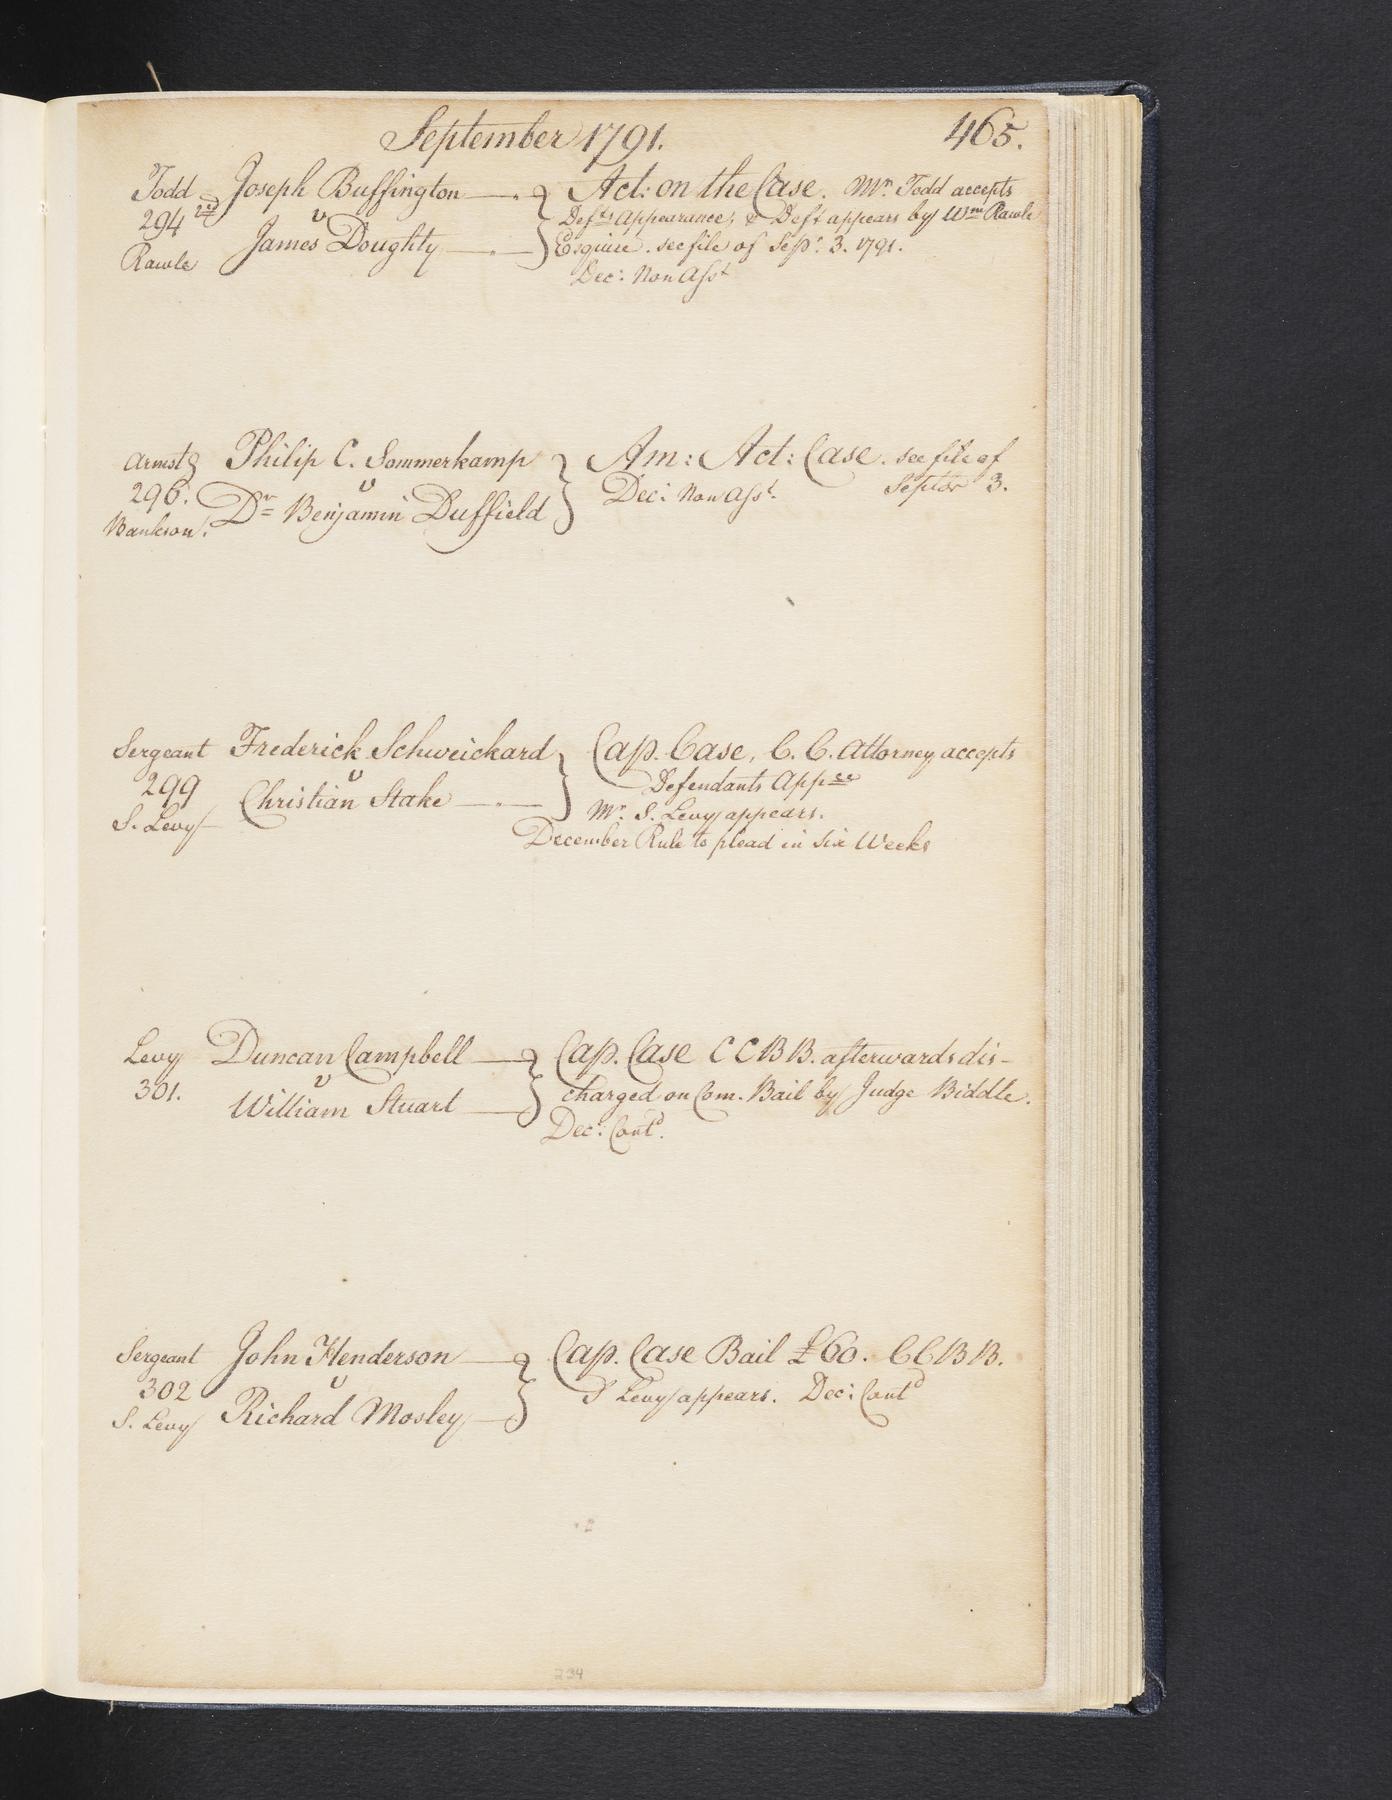 September 1791.
465.
Todd Joseph Buffington Act: on the Case. Mr. Todd accepts
294 2nd v Defts Appearance, & Deft appears by Wm Rawle
Rawle James Doughty Esquire. see file of Sepr. 3. 1791.
Dec: Non Asst
Armstg Philip C. Sommerkamp Am: Act: Case. see file of
296. v Dec: Non Asst. Septbr 3.
Bankson. Dr Benjamin Duffield
Sergeant Frederick Schweickard Cap. Case, C. C. Attorney accepts
299 v Defendants Appce
S. Levy Christian Stake Mr. S. Levy appears.
December Rule to plead in six Weeks
Levy Duncan Campbell Cap. Case C C B B. afterwards dis-
301. v charged on Com. Bail by Judge Biddle.
William Stuart
Dec: Contd.
Sergeant John Henderson Cap. Case Bail £60. C C B B.
302 v S Levy appears. Dec: Contd
S. Levy Richard Mosley
234